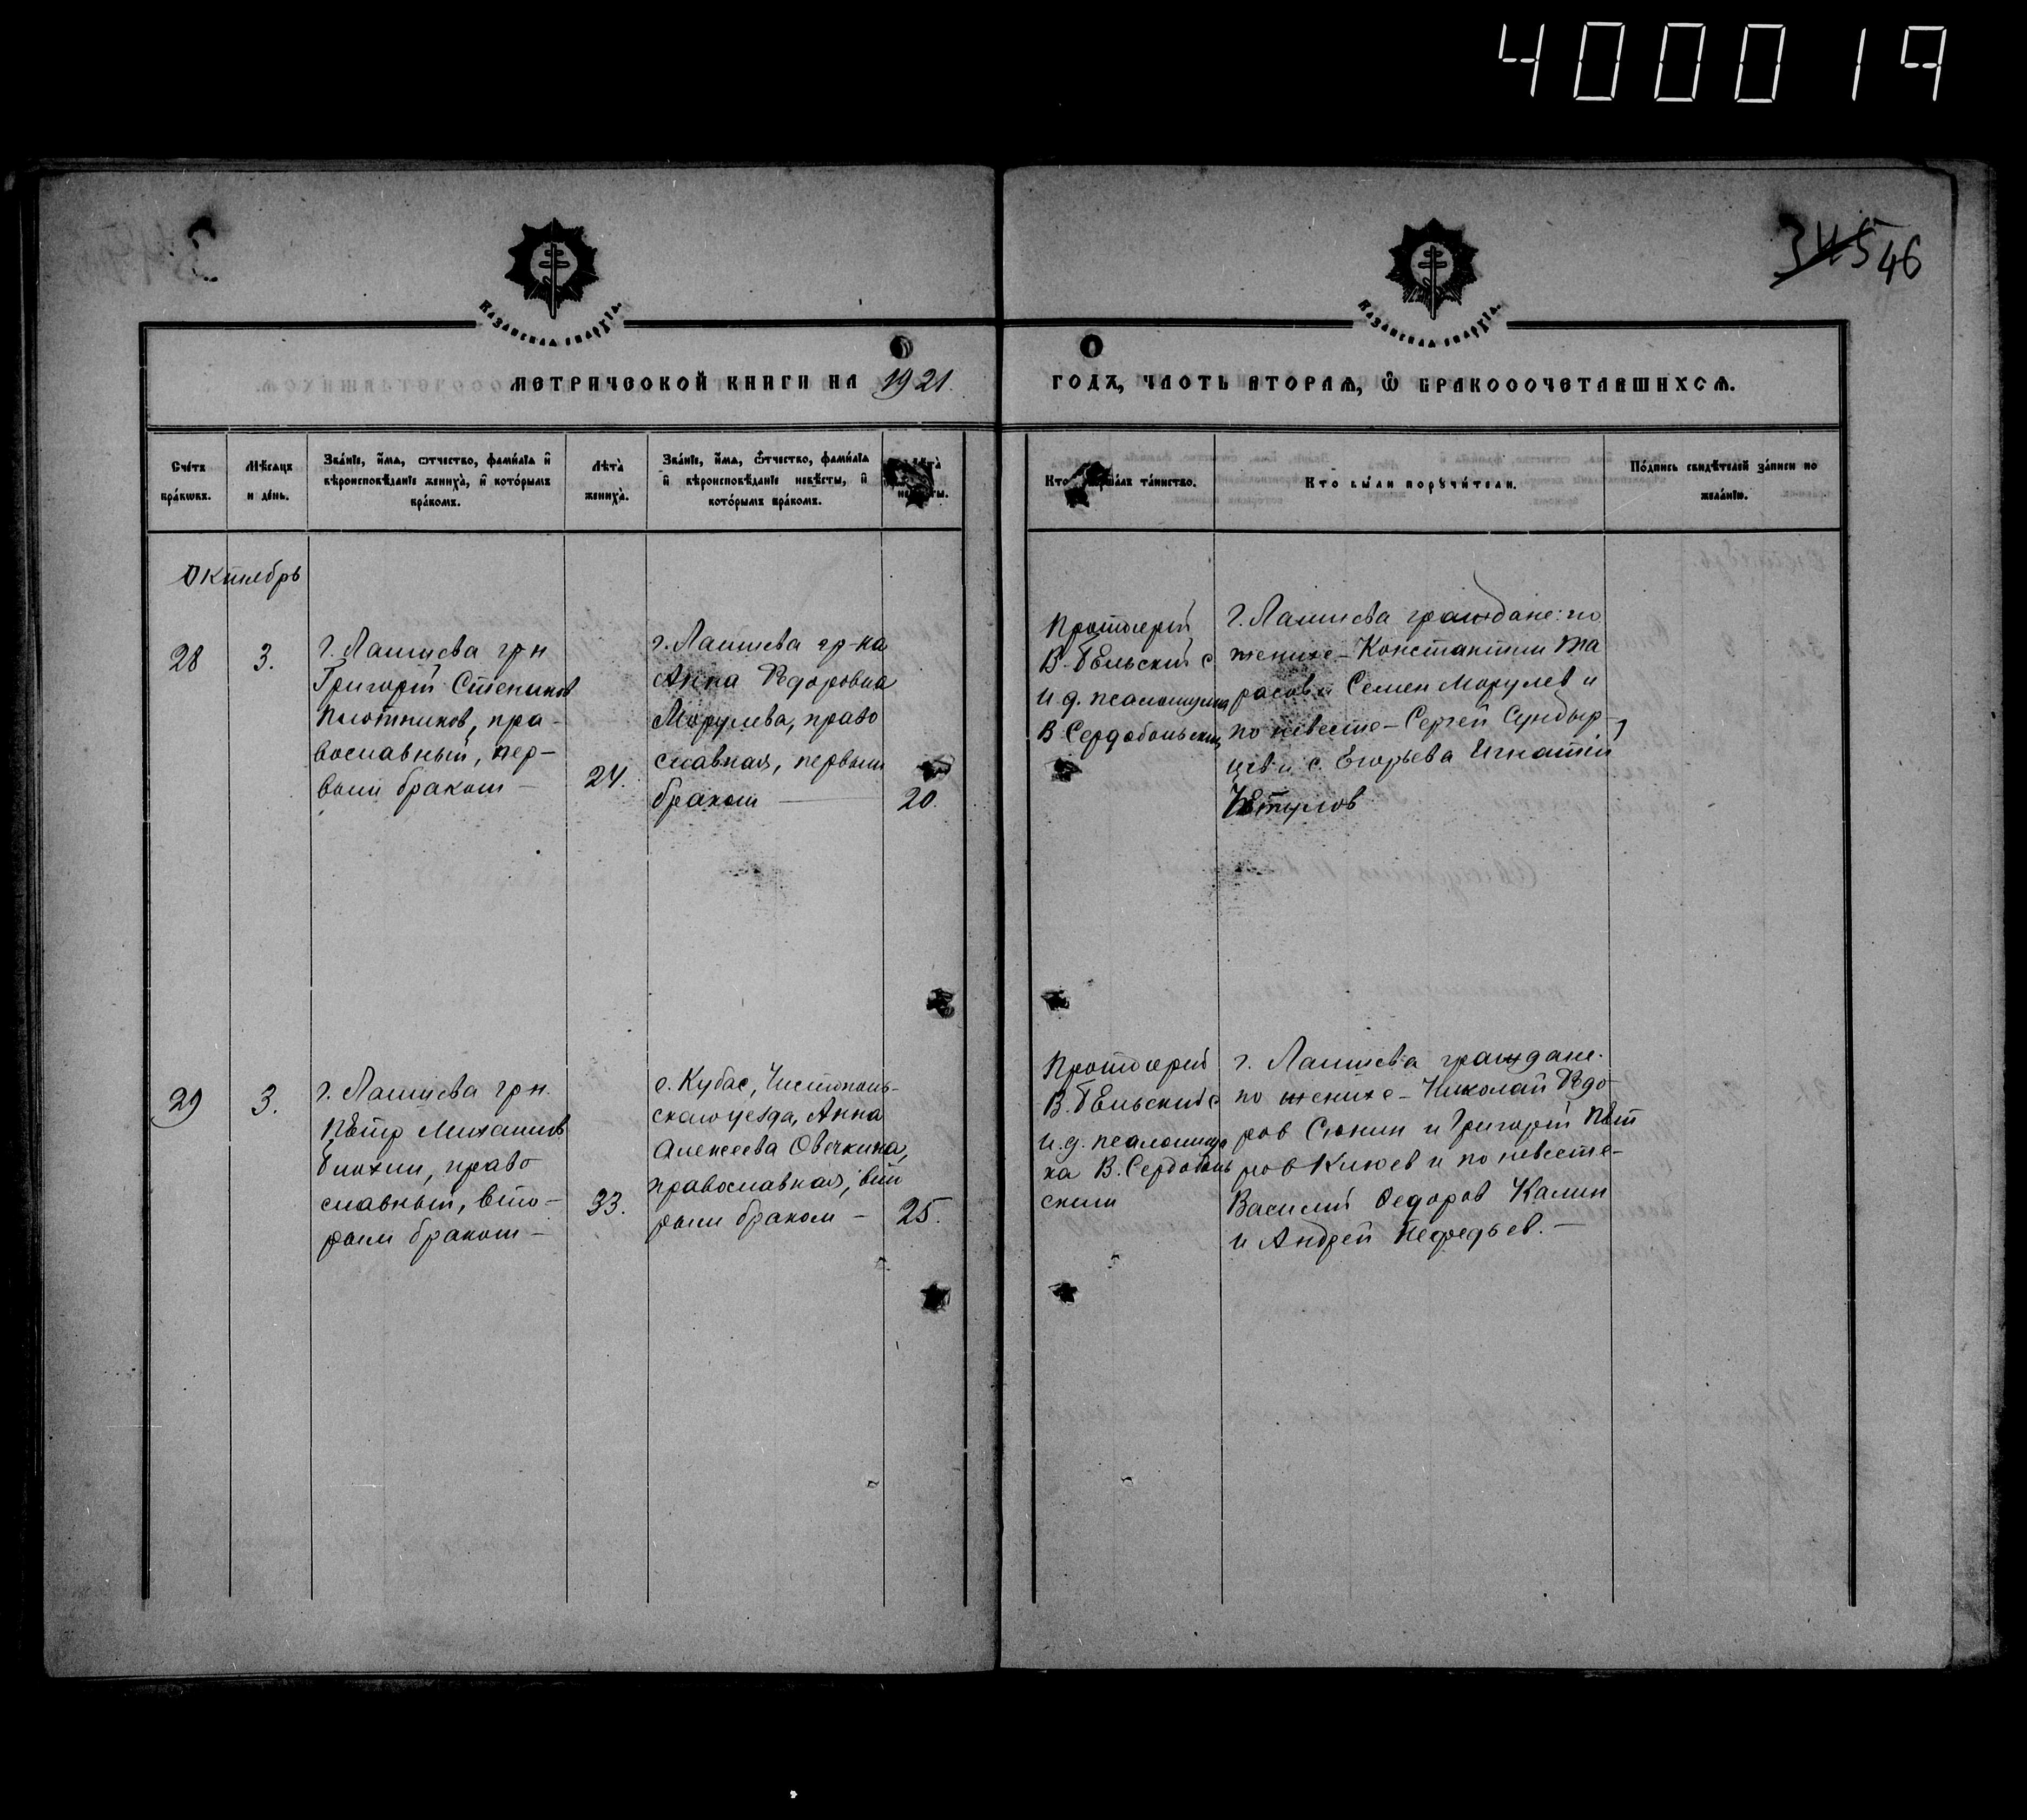 400019
34546
КАЗАНСКАЯ ЕПАРХІЯ.
КАЗАНСКАЯ ЕПАРХІЯ.
МЕТРИЧЕСКОЙ КНИГИ НА 1921.
ГОДЪ, ЧАСТЬ ВТОРАЯ, Ѿ БРАКОСОЧЕТАВШИХСЯ.
Счетъ браковъ.
Мѣсяцъ и день.
Званіе, имя, отчество, фамилія и
вѣроисповѣданіе жениха, и которымъ
бракомъ.
Лѣта
жениха.
Званіе, имя, отчество, фамилія
и вѣроисповѣданіе невѣсты, и
которымъ бракомъ.
Кто таинство.
Кто были поручители.
Подпись свидѣтелей записи по
желанію.
Октябрь
28
3.
г. Лаишева гр-н
Григорій Степанов
Плотников, пра-
вославный, пер-
вым браком —
24.
г. Лаишева гр-ка
Анна Ѳедоровна
Морулева, право
славная, первым
браком —
20.
Протоіерей
В. Бѣльский с
и. д. псаломщика
В. Сердобольским
г. Лаишева граждане: по
женихе — Константин Та
расов и Семен Морулев и
по невесте — Сергей Сундыр-
цев и с. Егорьева Игнатій
29
3.
г. Лаишева гр-н.
Пѣтр Михаилов
Блохин, право
славный, вто-
рым браком —
33.
с. Кубас, Чистополь-
скаго уезда, Анна
Алексеева Овечкина,
православная, вто
рым браком —
25.
Протоіерей
В. Бѣльский с
и. д. псаломщи
ка В. Сердоболь
ским
г. Лаишева граждане.
по женихе — Николай Ѳедо-
ров Сюнин и Григорій Пѣт
ров Клюев и по невесте —
Василій Федоров Калин
и Андрей Нефедьев. —